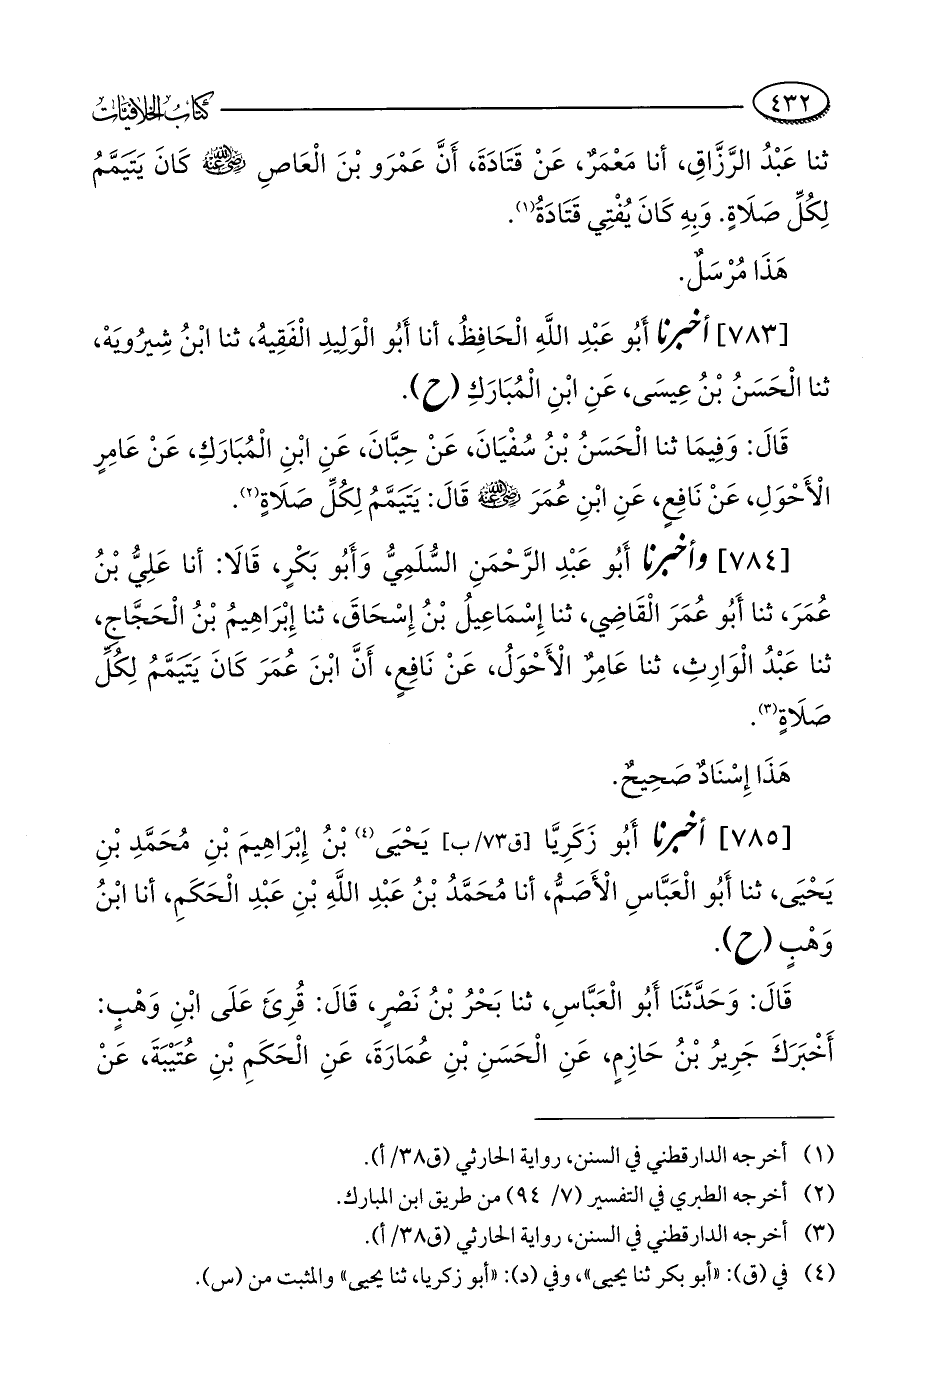 ٤٣٢
كتاب الخلافيات
ثنا عَبْدُ الرَّزَّاقِ، أنا مَعْمَرٌ، عَنْ قَتَادَةَ، أَنَّ عَمْرَو بْنَ الْعَاصِ رضي الله عنه كَانَ يَتَيَمَّمُ
لِكُلِّ صَلَاةٍ. وَبِهِ كَانَ يُفْتِي قَتَادَةُ(١).
هَذَا مُرْسَلٌ.
[٧٨٣] أخبرنا أَبُو عَبْدِ اللَّهِ الْحَافِظُ، أنا أَبُو الْوَلِيدِ الْفَقِيهُ، ثنا ابْنُ شِيرُويَهْ،
ثنا الْحَسَنُ بْنُ عِيسَى، عَنِ ابْنِ الْمُبَارَكِ (ح).
قَالَ: وَفِيمَا ثنا الْحَسَنُ بْنُ سُفْيَانَ، عَنْ حِبَّانَ، عَنِ ابْنِ الْمُبَارَكِ، عَنْ عَامِرٍ
الْأَحْوَلِ، عَنْ نَافِعٍ، عَنِ ابْنِ عُمَرَ رضي الله عنه قَالَ: يَتَيَمَّمُ لِكُلِّ صَلَاةٍ(٢).
[٧٨٤] وأخبرنا أَبُو عَبْدِ الرَّحْمَنِ السُّلَمِيُّ وَأَبُو بَكْرٍ، قَالَا: أنا عَلِيُّ بْنُ
عُمَرَ، ثنا أَبُو عُمَرَ الْقَاضِي، ثنا إِسْمَاعِيلُ بْنُ إِسْحَاقَ، ثنا إِبْرَاهِيمُ بْنُ الْحَجَّاجِ،
ثنا عَبْدُ الْوَارِثِ، ثنا عَامِرٌ الْأَحْوَلُ، عَنْ نَافِعٍ، أَنَّ ابْنَ عُمَرَ كَانَ يَتَيَمَّمُ لِكُلِّ
صَلَاةٍ(٣).
هَذَا إِسْنَادٌ صَحِيحٌ.
[٧٨٥] أخبرنا أَبُو زَكَرِيَّا [ق٧٣/ب] يَحْيَى(٤) بْنُ إِبْرَاهِيمَ بْنِ مُحَمَّدِ بْنِ
يَحْيَى، ثنا أَبُو الْعَبَّاسِ الْأَصَمُّ، أنا مُحَمَّدُ بْنُ عَبْدِ اللَّهِ بْنِ عَبْدِ الْحَكَمِ، أنا ابْنُ
وَهْبٍ (ح).
قَالَ: وَحَدَّثَنَا أَبُو الْعَبَّاسِ، ثنا بَحْرُ بْنُ نَصْرٍ، قَالَ: قُرِئَ عَلَى ابْنِ وَهْبٍ:
أَخْبَرَكَ جَرِيرُ بْنُ حَازِمٍ، عَنِ الْحَسَنِ بْنِ عُمَارَةَ، عَنِ الْحَكَمِ بْنِ عُتَيْبَةَ، عَنْ
(١) أخرجه الدارقطني في السنن، رواية الحارثي (ق٣٨/ أ).
(٢) أخرجه الطبري في التفسير (٧/ ٩٤) من طريق ابن المبارك.
(٣) أخرجه الدارقطني في السنن، رواية الحارثي (ق٣٨/ أ).
(٤) في (ق): «أبو بكر ثنا يحيى»، وفي (د): «أبو زكريا، ثنا يحيى» والمثبت من (س).